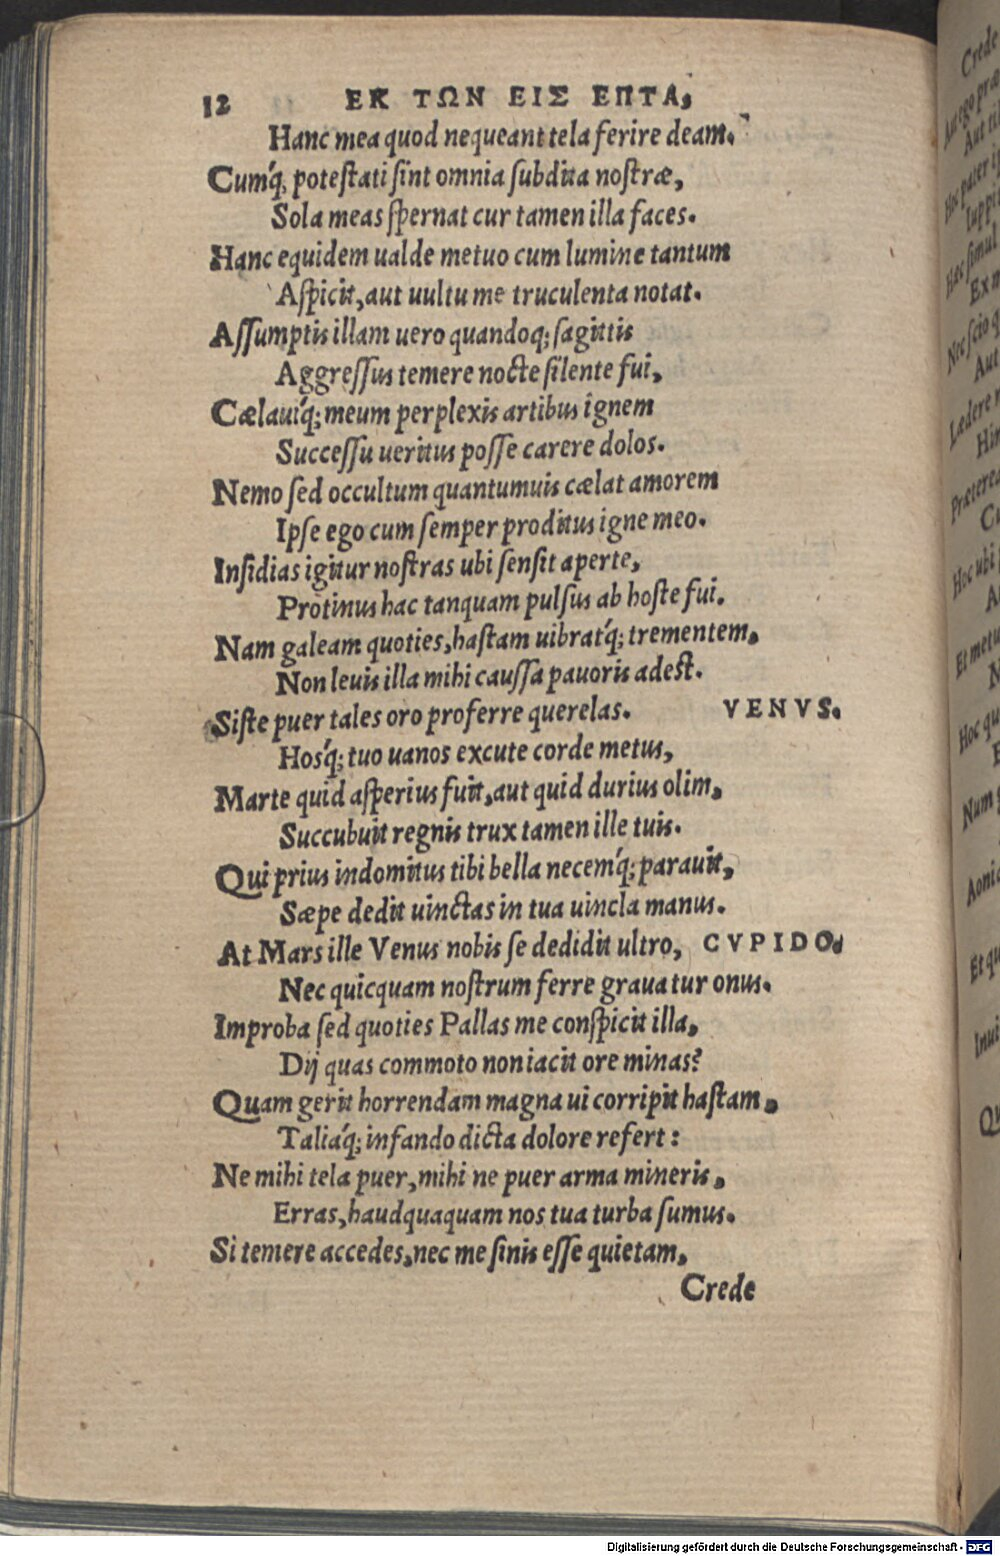 12 ΕΚ ΤΩΝ ΕΙΣ ΕΠΤΑ,
Hanc mea quod nequeant tela ferire deam.
Cumq́; potestati ſint omnia ſubdita nostræ,
Sola meas ſpernat cur tamen illa faces.
Hanc equidem ualde metuo cum lumine tantum
Aſpicit, aut uultu me truculenta notat.
Aſſumptis illam uero quandoq; ſagittis
Aggreſſus temere nocte ſilente fui,
Cælauiq́; meum perplexis artibus ignem
Succeſſu ueritus poſſe carere dolos.
Nemo ſed occultum quantumuis cælat amorem
Ipſe ego cum ſemper proditus igne meo.
Inſidias igitur nostras ubi ſenſit aperte,
Protinus hac tanquam pulſus ab hoste fui.
Nam galeam quoties, hastam uibratq́; trementem,
Non leuis illa mihi cauſſa pauoris adest.
Siste puer tales oro proferre querelas. VENVS.
Hosq́; tuo uanos excute corde metus,
Marte quid aſperius fuit, aut quid durius olim,
Succubuit regnis trux tamen ille tuis.
Qui prius indomitus tibi bella necemq́; parauit,
Sæpe dedit uinctas in tua uincla manus.
At Mars ille Venus nobis ſe dedidit ultro, CVPIDO.
Nec quicquam nostrum ferre graua tur onus.
Improba ſed quoties Pallas me conſpicit illa,
Dij quas commoto non iacit ore minas?
Quam gerit horrendam magna ui corripit hastam,
Taliaq́; infando dicta dolore refert:
Ne mihi tela puer, mihi ne puer arma mineris,
Erras, haudquaquam nos tua turba ſumus.
Si temere accedes, nec me ſinis eſſe quietam,
Crede
Crede
Aut ego præ
Aut ti
Hoc pater i
Iuppi
Hæc ſimul
Ex
Nec ſcio q
Aut
Lædere
Hin
Præterea
Hoc ubi
Et metu
Hoc qu
Num
Aonia
Et qu
Inui
Qu
Digitalisierung gefördert durch die Deutsche Forschungsgemeinschaft - DFG